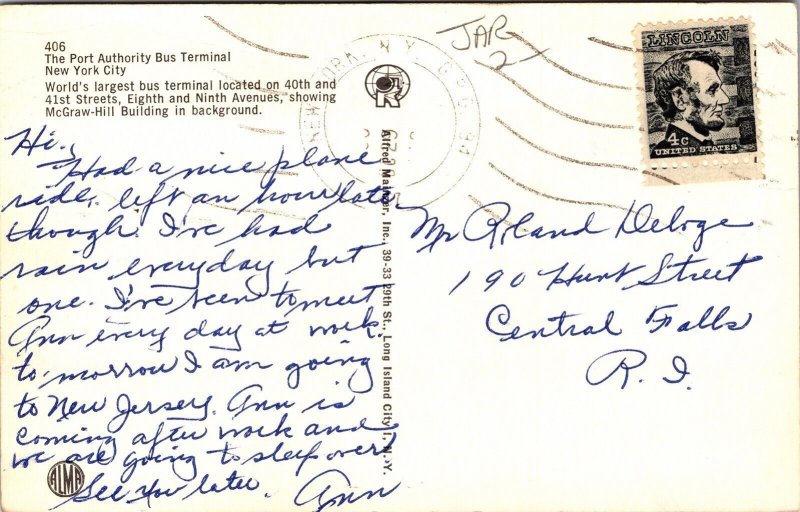 406
The Port Authority Bus Terminal
New York City
World's largest bus terminal located on 40th and
41st Streets, Eighth and Ninth Avenues, showing
McGraw-Hill Building in background.
JAR
2
LINCOLN
4c
UNITED STATES
Hi,
Had a nice plane
ride, left an hour late
though. I've had
rain everyday but
one. I've been to meet
Ann every day at work.
to-morrow I am going
to New Jersey. Ann is
coming after work and
we are going to sleep over
See you later. Ann
ALMA
Alfred Mainzer, Inc., 39-33 29th St., Long Island City 1, N.Y.
Mr Roland Deloge
190 Hunt Street
Central Falls
R. I.